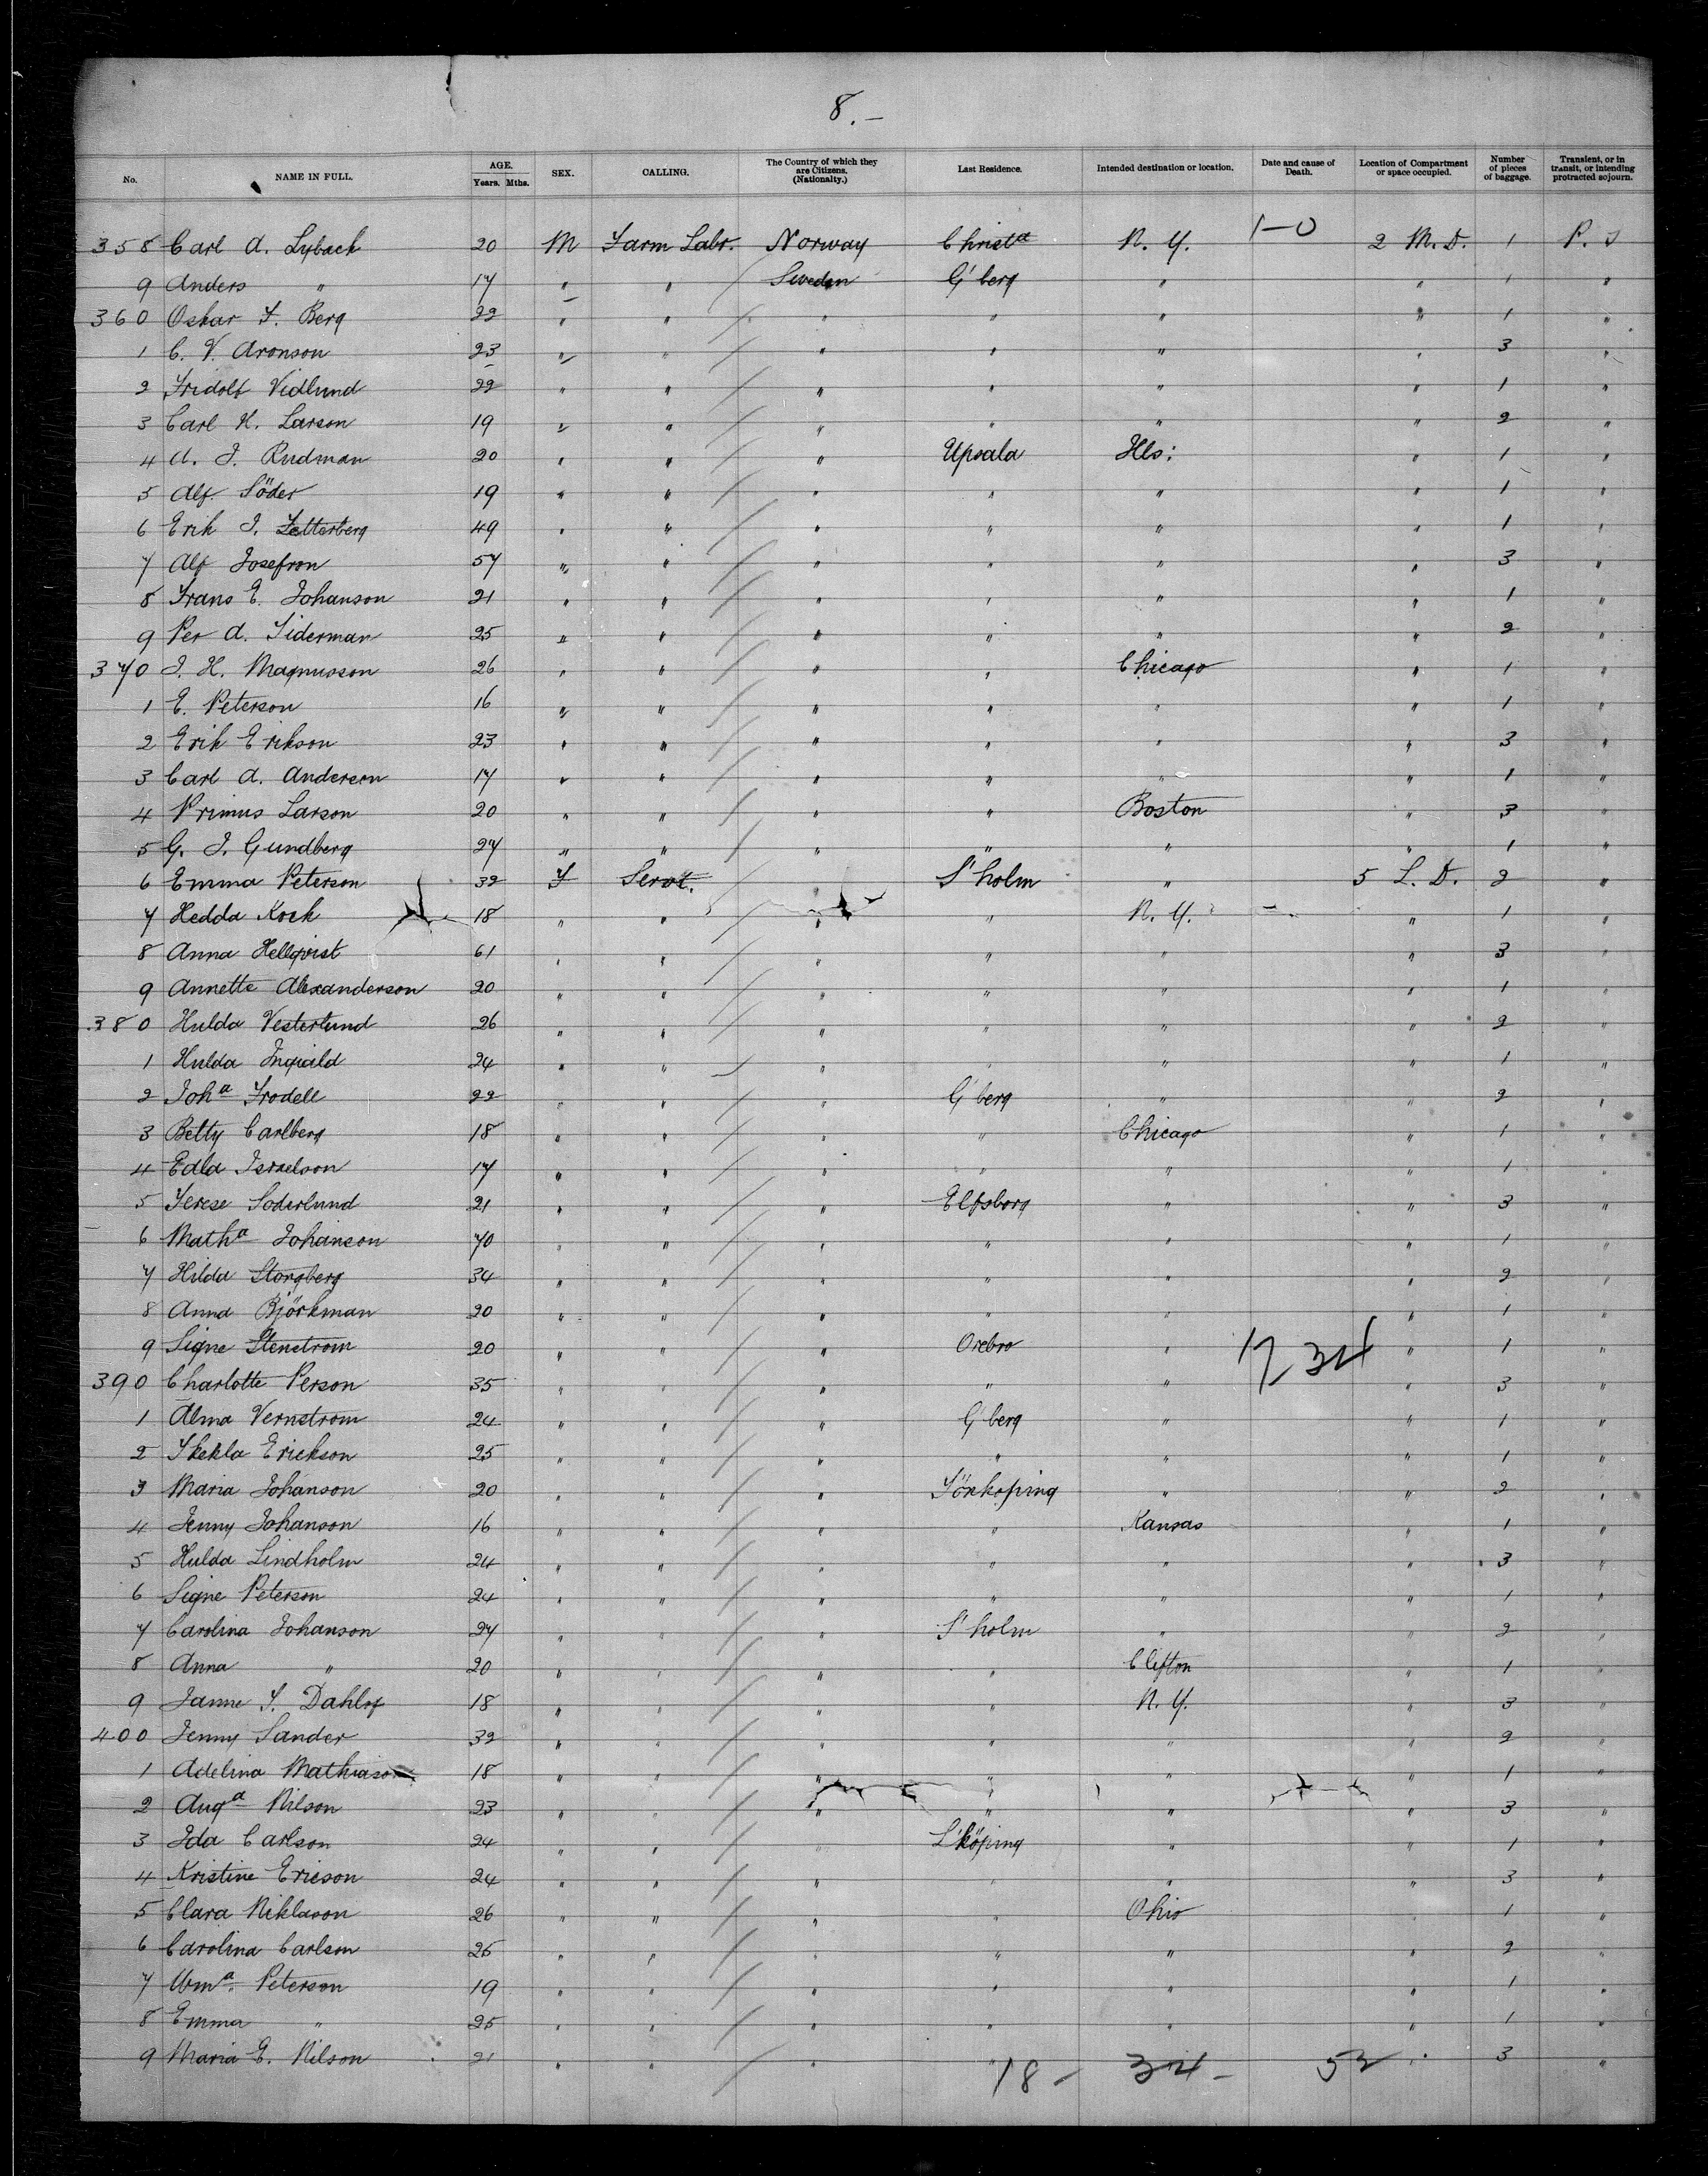 8.—
No. NAME IN FULL. AGE. Years. Mths. SEX. CALLING. The Country of which they are Citizens. (Nationalty.) Last Residence. Intended destination or location. Date and cause of Death. Location of Compartment or space occupied. Number of pieces of baggage. Transient, or in transit, or intending protracted sojourn.
358 Carl A. Lyback 20 M Farm Labr. Norway Christa N. Y. 1-0 2 M. D. 1 P. S
9 Anders " 17 " " Sweden G'berg " " 1 "
360 Oskar F. Berg 22 " " " " " " 1 "
1 C. V. Aronson 23 " " " " " " 3 "
2 Fridolf Vidlund 22 " " " " " " 1 "
3 Carl H. Larson 19 " " " " " " 2 "
4 A. J. Rudman 20 " " " Upsala Ills: " 1 "
5 Alf. Söder 19 " " " " " " 1 "
6 Erik J. Zetterberg 49 " " " " " " 1 "
7 Alf Josefson 57 " " " " " " 3 "
8 Frans E. Johanson 21 " " " " " " 1 "
9 Per A. Siderman 25 " " " " " " 2 "
370 J. H. Magnusson 26 " " " " Chicago " 1 "
1 E. Peterson 16 " " " " " " 1 "
2 Erik Erikson 23 " " " " " " 3 "
3 Carl A. Anderson 17 " " " " " " 1 "
4 Primus Larson 20 " " " " Boston " 3 "
5 G. J. Gundberg 27 " " " " " " 1 "
6 Emma Peterson 32 F Servt. " S'holm " 5 L. D. 2 "
7 Hedda Kock 18 " " " " N. Y. " 1 "
8 Anna Hellqvist 61 " " " " " " 3 "
9 Annette Alexanderson 20 " " " " " " 1 "
380 Hulda Vesterlund 26 " " " " " " 2 "
1 Hulda Ingiald 24 " " " " " " 1 "
2 Joha Frodell 22 " " " G'berg " " 2 "
3 Betty Carlberg 18 " " " " Chicago " 1 "
4 Edla Israelson 17 " " " " " " 1 "
5 Terese Soderlund 21 " " " Elfsborg " " 3 "
6 Matha Johanson 70 " " " " " " 1 "
7 Hilda Storgberg 34 " " " " " " 2 "
8 Anna Björkman 20 " " " " " " 1 "
9 Signe Stenstrom 20 " " " Orebro " 17 34 " 1 "
390 Charlotte Person 35 " " " " " " 3 "
1 Alma Vernstrom 24 " " " G'berg " " 1 "
2 Thekla Erickson 25 " " " " " " 1 "
3 Maria Johanson 20 " " " Jönkoping " " 2 "
4 Jenny Johanson 16 " " " " Kansas " 1 "
5 Hulda Lindholm 24 " " " " " " 3 "
6 Signe Peterson 24 " " " " " " 1 "
7 Carolina Johanson 27 " " " S'holm " " 2 "
8 Anna " 20 " " " " Clifton " 1 "
9 Janne S. Dahlof 18 " " " " N. Y. " 3 "
400 Jenny Sander 32 " " " " " " 2 "
1 Adelina Mathiason 18 " " " " " " 1 "
2 Auga Nilson 23 " " " " " " 3 "
3 Ida Carlson 24 " " " L'köping " " 1 "
4 Kristine Ericson 24 " " " " " " 3 "
5 Clara Niklason 26 " " " " Ohio " 1 "
6 Carolina Carlson 25 " " " " " " 2 "
7 Wma Peterson 19 " " " " " " 1 "
8 Emma " 25 " " " " " " 1 "
9 Maria E. Nilson 21 " " " " " 3 "
18 - 34 - 52